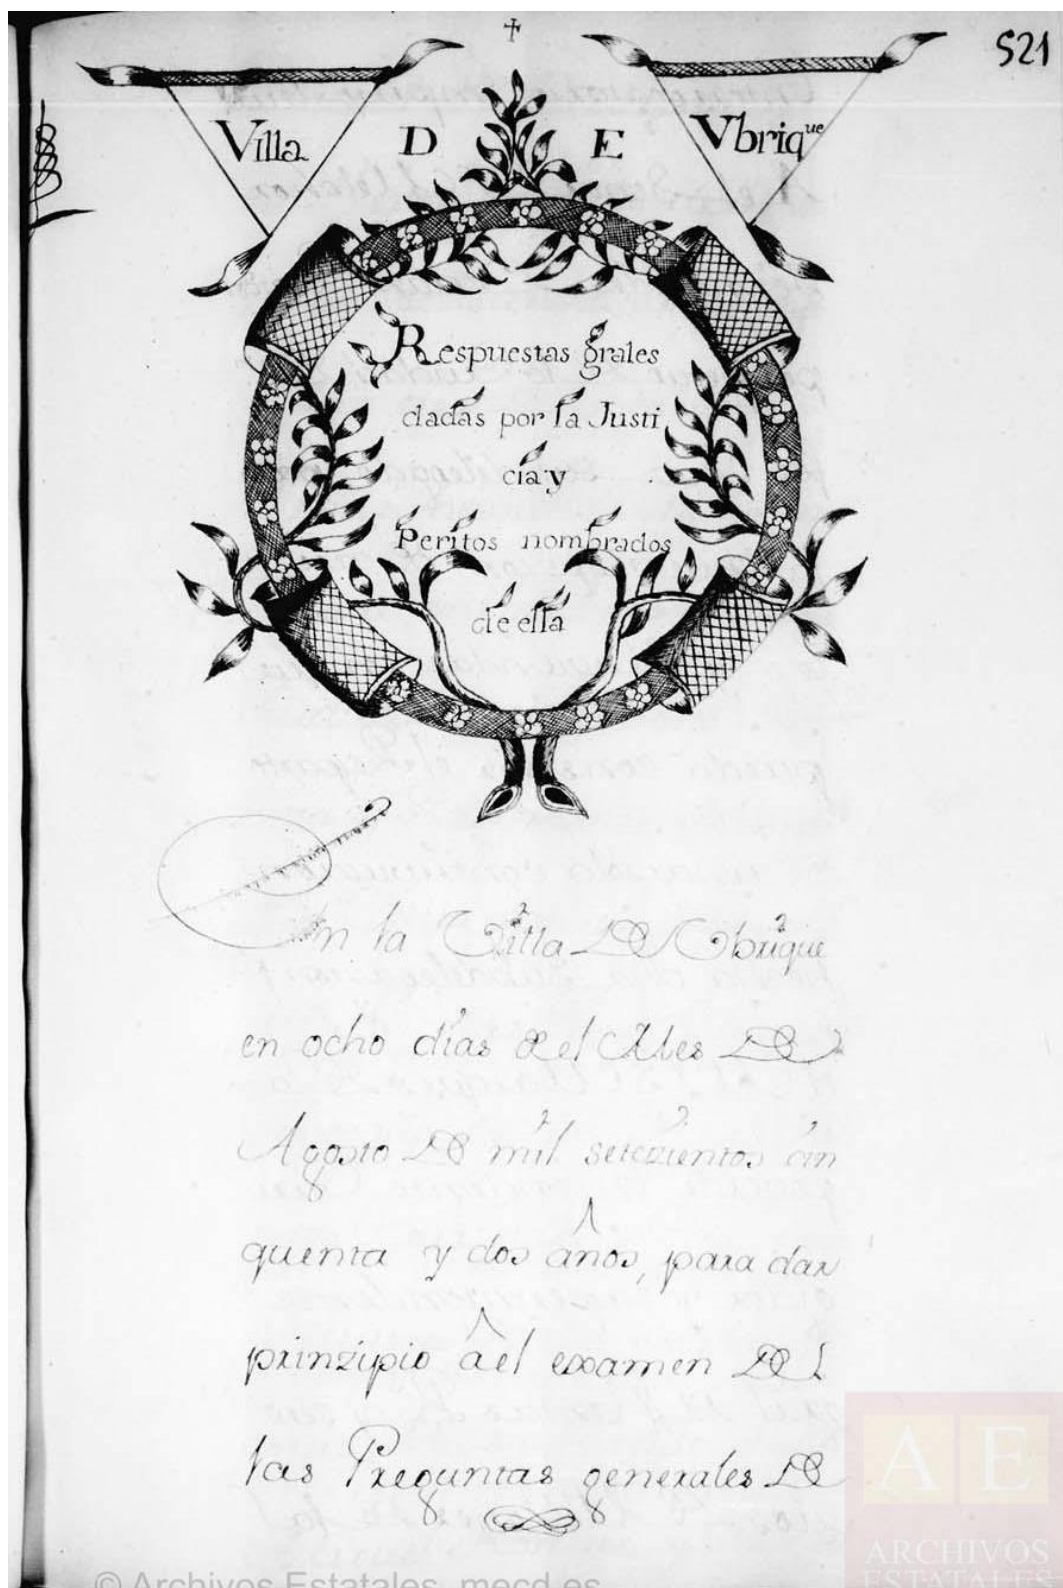 521
Villa DE Vbrique
Respuestas grales
dadas por la Justi
cia y
Peritos nombrados
de ella
En la Villa DE Vbrique
en ocho dias del Mes DE
Agosto DE mil setezientos cin
quenta y dos años, para dar
prinzipio a el examen DE
las Preguntas generales DE
AE
ARCHIVOS
ESTATALES
© Archivos Estatales, mecd.es